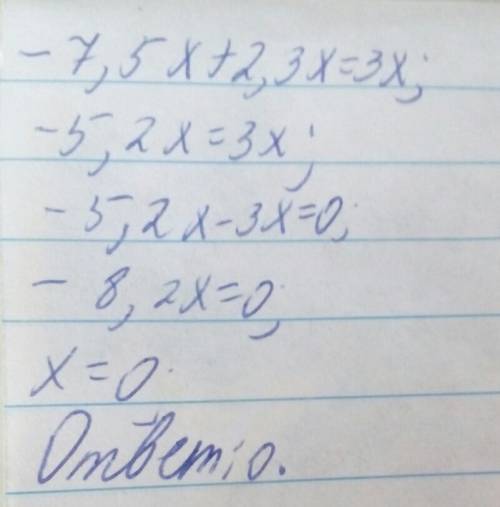 -7,5x+2,3x=3x;
-5,2x=3x;
-5,2x-3x=0;
-8,2x=0;
x=0.
Ответ: 0.